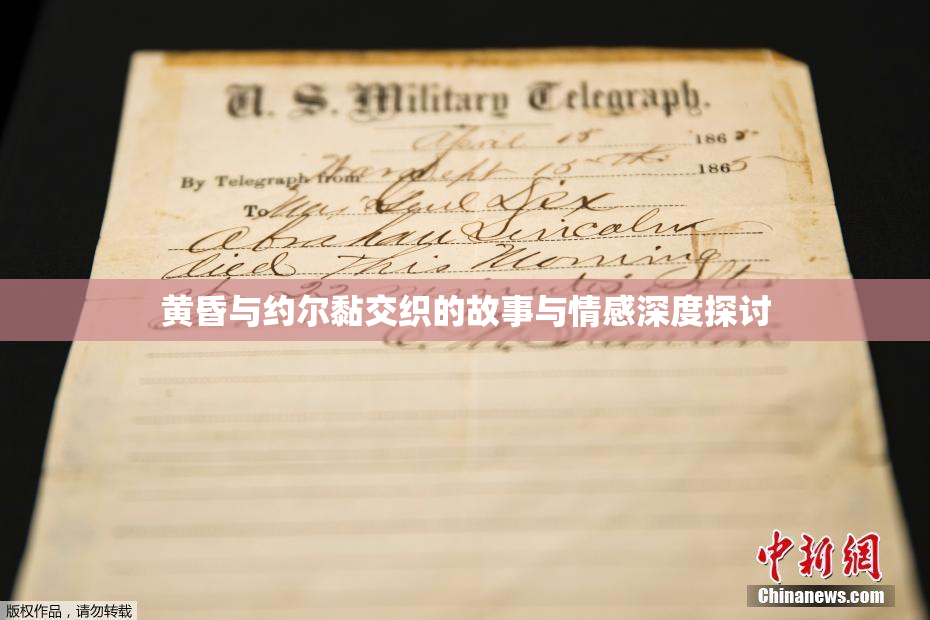 U. S. Military Telegraph.
April 15 1865
By Telegraph from War Dept 15th 1865
To Maj Genl Dix
Abraham Lincoln
died This Morning
at 22 minutes after
黄昏与约尔黏交织的故事与情感深度探讨
E. M. Stanton
中新网
Chinanews.com
版权作品，请勿转载